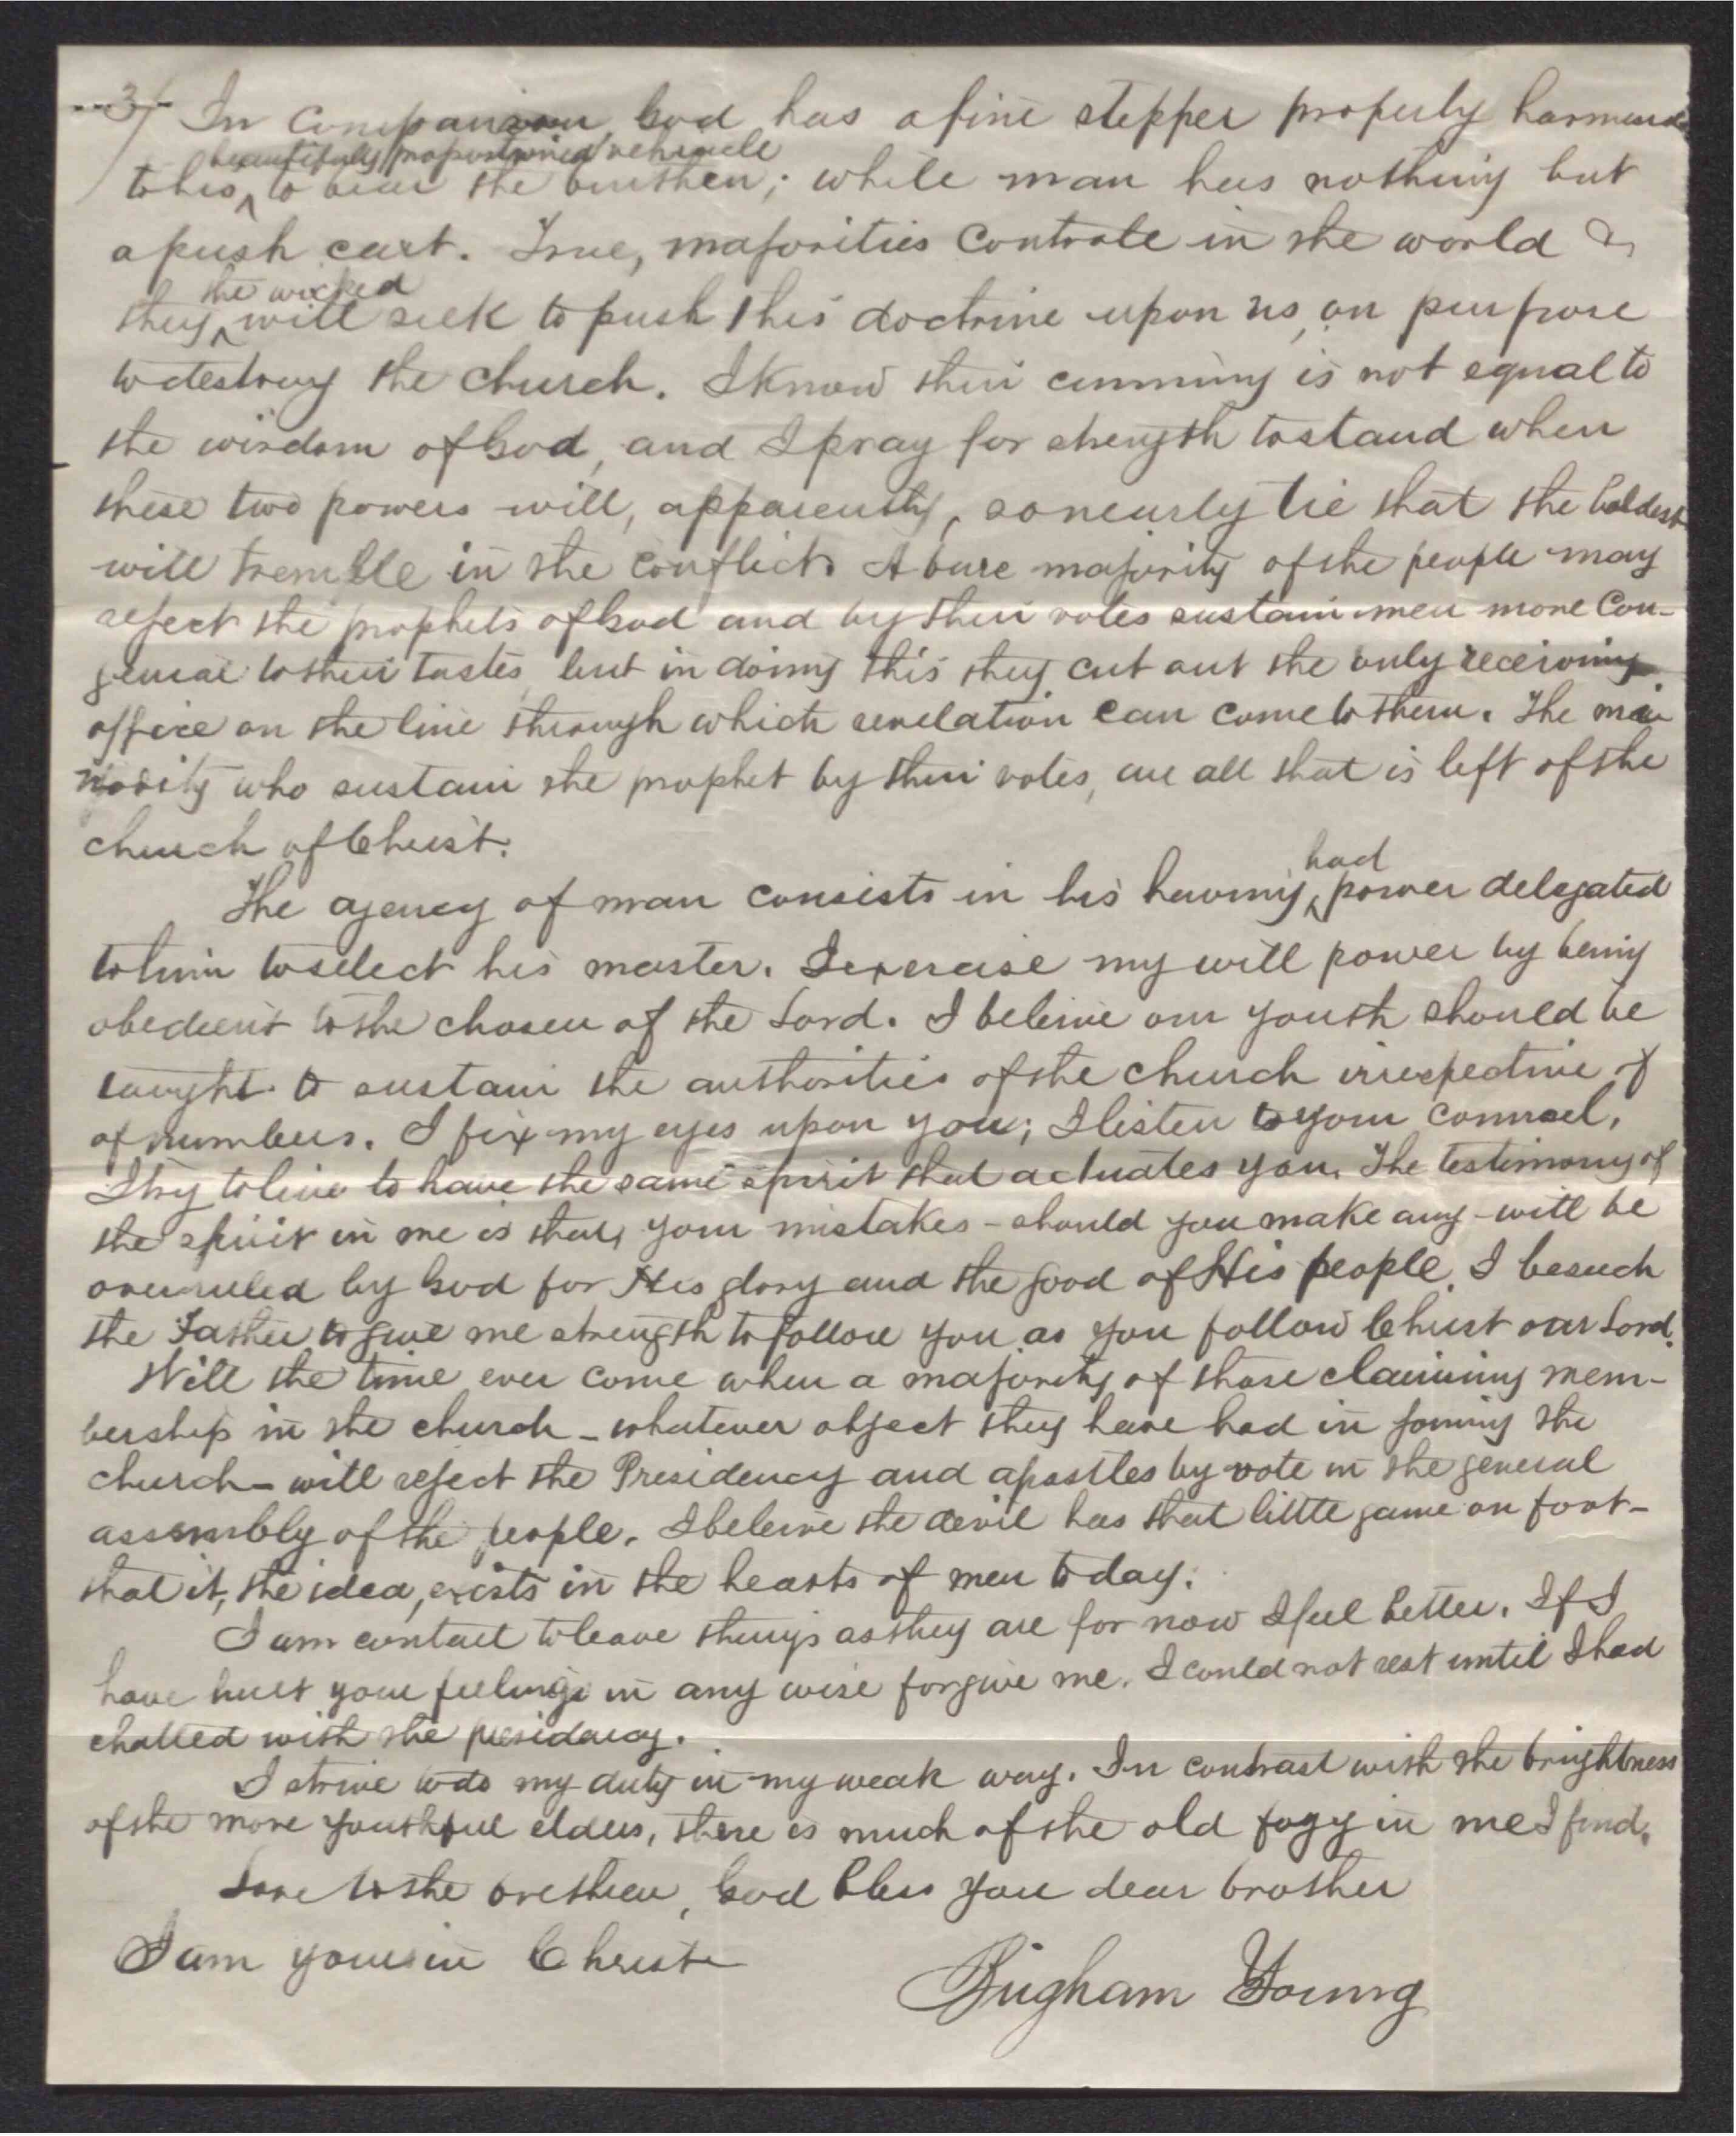 3/ In Comparison God has a fine stepper properly harnessed
beautifully proportioned vehicle
to his ^ to bear the burthen; while man has nothing but
a push cart. True, majorities Controle in the world &
the wicked
they ^ will seek to push this doctrine upon us, on purpose
to destroy the church. I Know their cunning is not equal to
the wisdom of God, and I pray for strength to stand when
these two powers will, apparently, so nearly tie that the boldest
will tremble in the conflict. A bare majority of the people may
reject the prophets of God and by their votes sustain men more Con-
genial to their tastes, but in doing this they cut out the only receiving
office on the line through which revelation can come to them. The mi
nority who sustain the prophet by their votes, are all that is left of the
church of Christ.
had
The agency of man consists in his having ^ power delegated
to him to select his master. I exercise my will power by being
obedient to the chosen of the Lord. I beleive our youth should be
taught to sustain the authorities of the church irrespective of
of numbers. I fix my eyes upon you; I listen to your counsel,
I try to live to have the same spirit that actuates you. The testimony of
the spirit in me is that, your mistakes - should you make any - will be
overruled by God for His glory and the good of His people. I beseech
the Father to give me strength to follow you as you follow Christ our Lord.
Will the time ever come when a majority of those claiming mem-
bership in the church - whatever object they have had in joining the
church - will reject the Presidency and apostles by vote in the general
assembly of the people. I beleive the devil has that little game on foot -
that it, the idea, exists in the hearts of men today.
I am content to leave things as they are for now I feel better. If I
have hurt your feelings in any wise forgive me. I could not rest until I had
chatted with the presidency.
I strive to do my duty in my weak way. In contrast with the brightness
of the more youthful elders, there is much of the old fogy in me I find.
Love to the brethren, God bless you dear brother
I am yours in Christ
Brigham Young